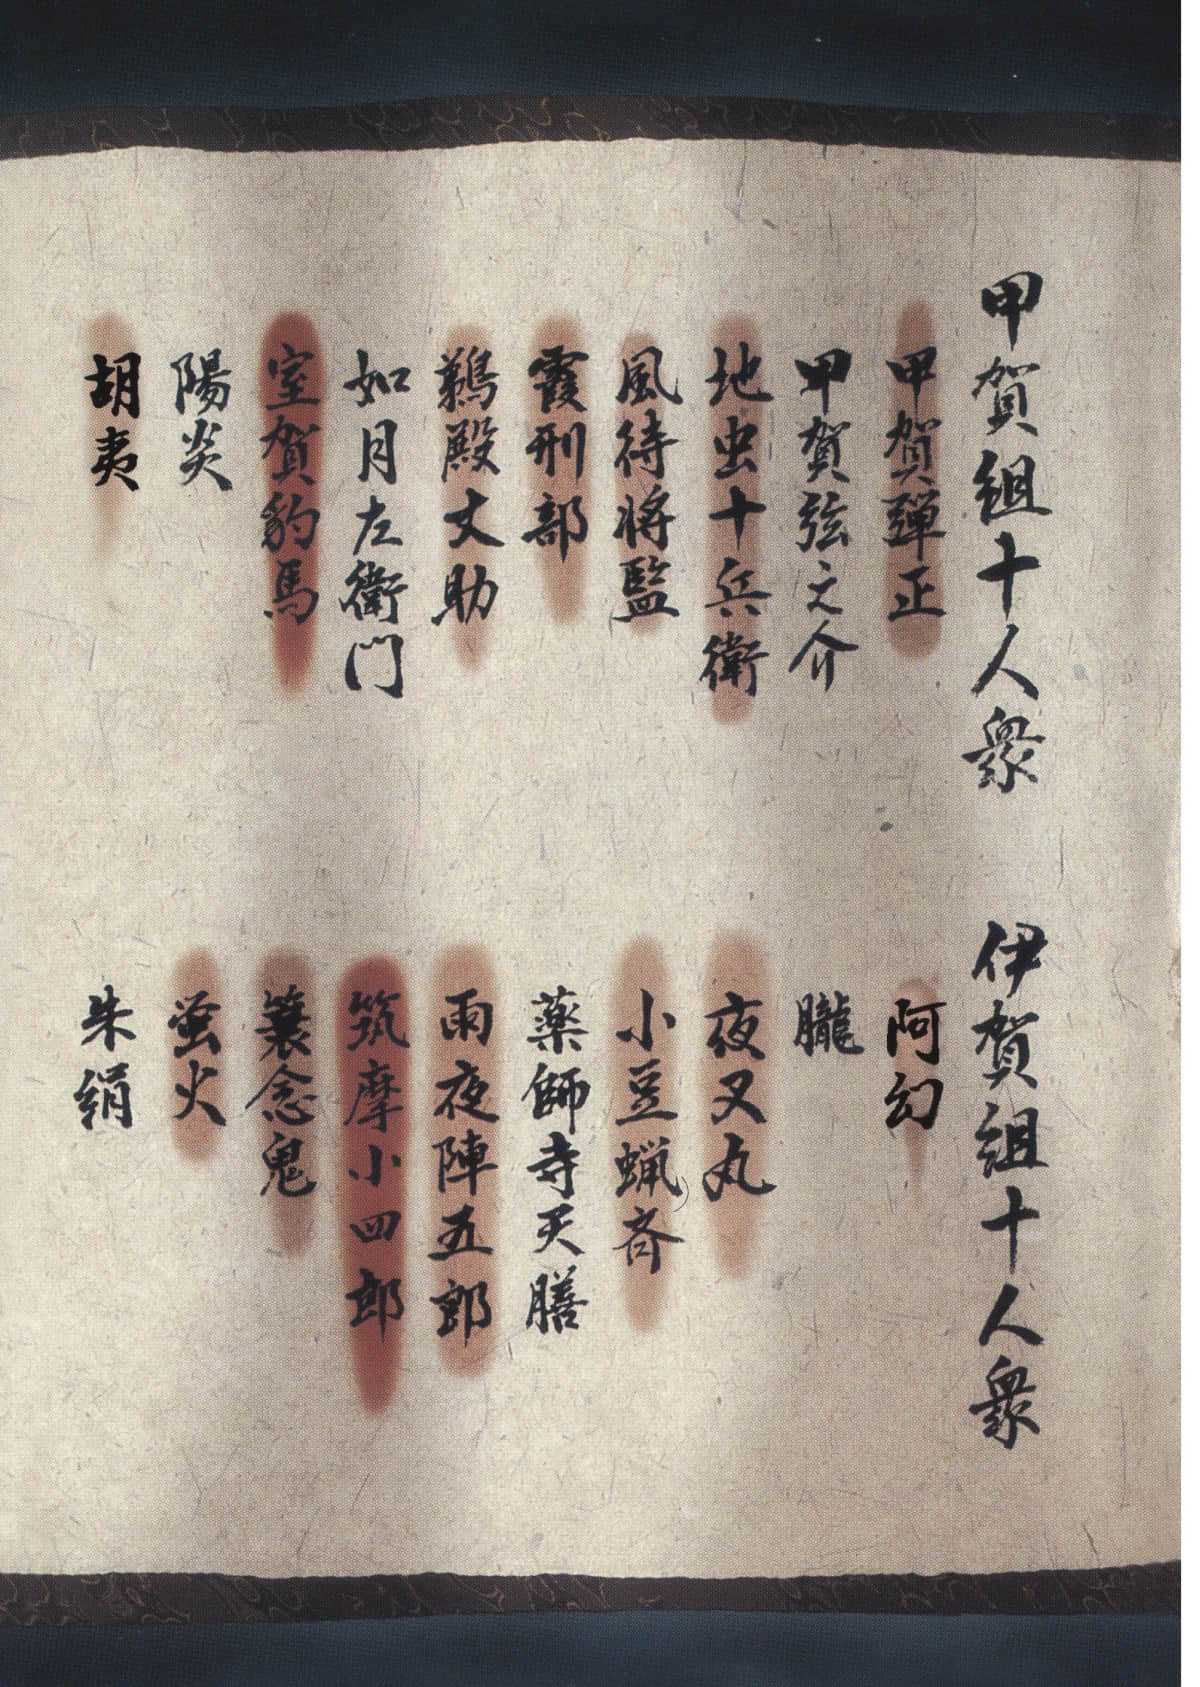 甲賀組十人衆
甲賀弾正
甲賀弦之介
地虫十兵衛
風待将監
霞刑部
鵜殿丈助
如月左衛門
室賀豹馬
陽炎
胡夷
伊賀組十人衆
阿幻
朧
夜叉丸
小豆蝋斉
薬師寺天膳
雨夜陣五郎
筑摩小四郎
簑念鬼
蛍火
朱絹